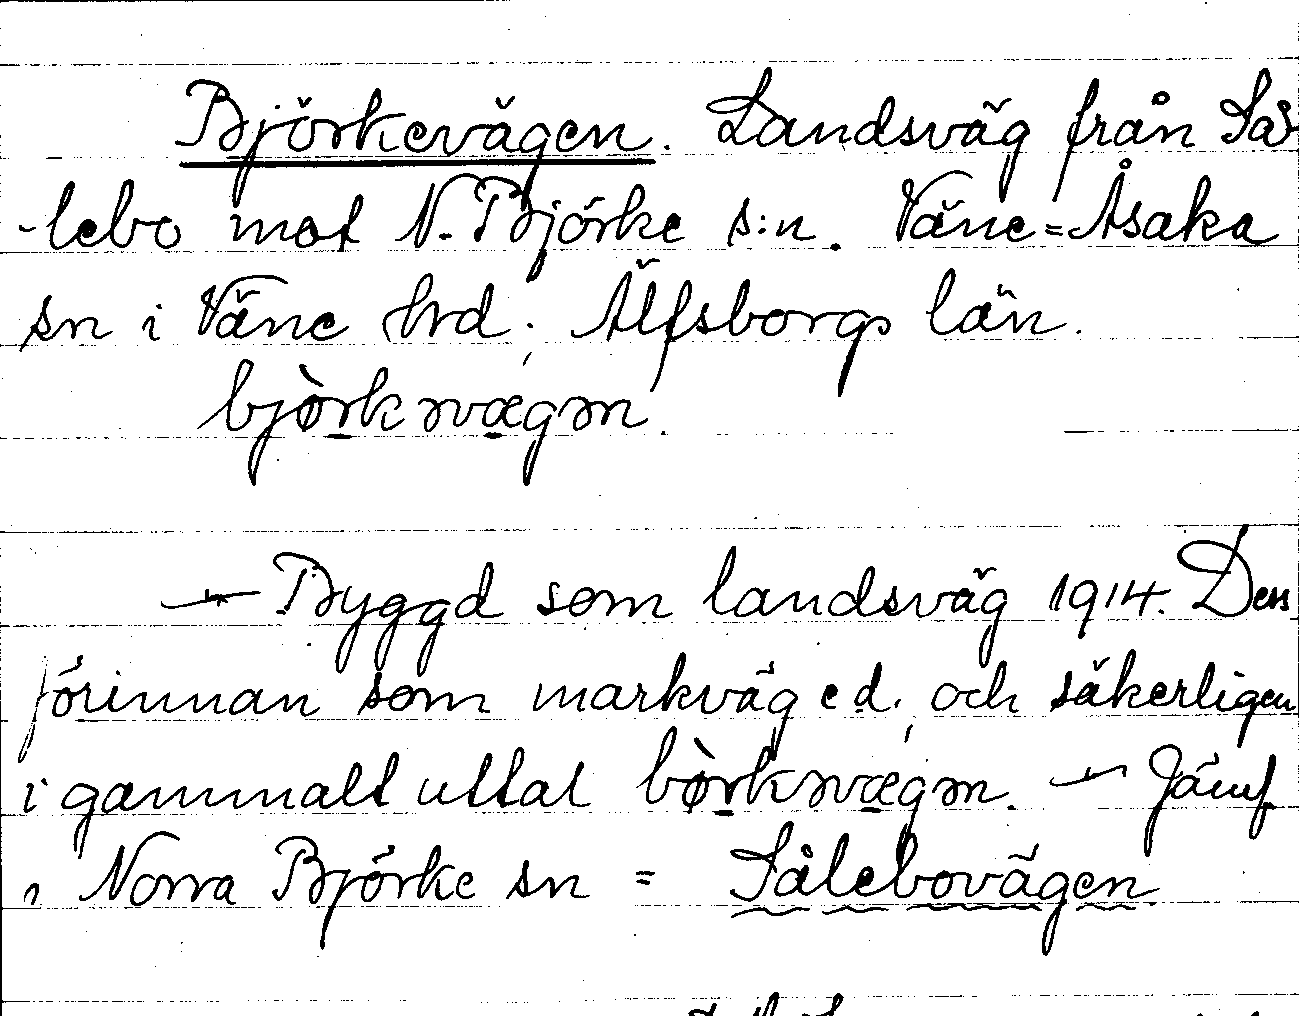 Björkevägen. Landsväg från Så-
lebo mot N. Björke s:n. Väne=Åsaka
sn i Väne hrd; Älfsborgs län.
bjòrkəvægən.
— Byggd som landsväg 1914. Dess
förinnan som markväg e d; och säkerligen
i gammalt uttal bòrkəvægən. — Jämf
i Norra Björke sn = Sålebovägen